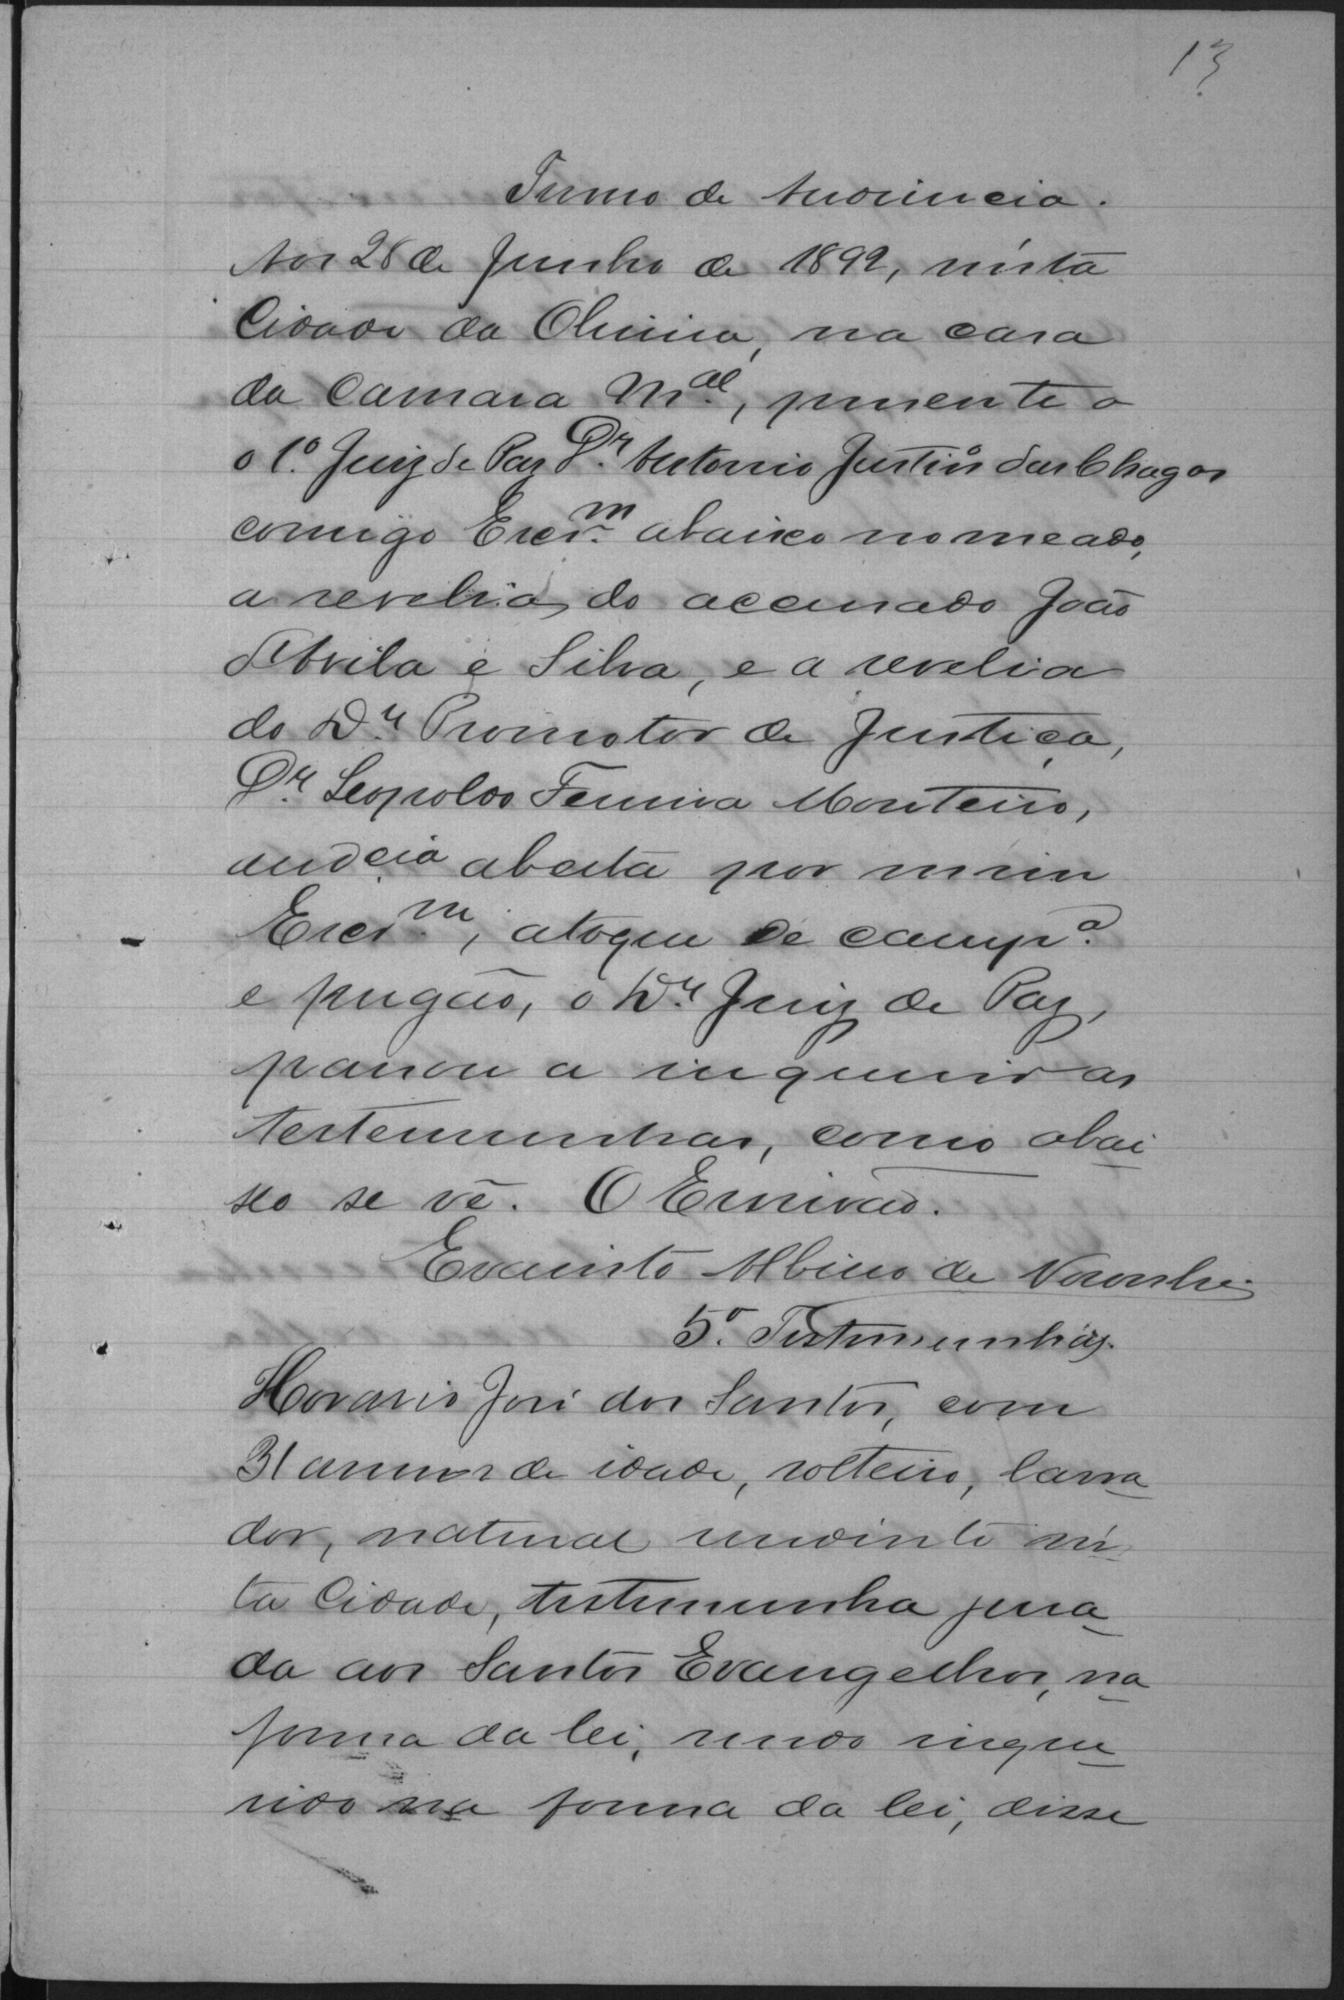 13
Termo de Audiencia.
Aos 28 de Junho de 1892, nesta
Cidade da Oliveira, na casa
da Camara M.al, presente o
o 1.o Juiz de Paz Dr. Antonio Justin.o das Chagas
comigo Escr.m abaixo nomeado,
a revelia do accusado João
d'Avila e Silva, e a revelia
do Dr. Promotor de Justiça,
Dr. Leopoldo Ferreira Monteiro,
audcia aberta por mim
Escr.m, a toque de camp.a
e pregão, o Dr. Juiz de Paz,
passou a inquerir as
testemunhas, como abai
xo se vê. O Escrivão.
Evaristo Albino de Noronha
5.a Testemunha
Horacio José dos Santos, com
31 annos de idade, solteiro, lavra
dor, natural residente nes
ta Cidade, testemunha jura
da aos Santos Evangelhos, na
forma da lei, sendo inque
rido na forma da lei, disse